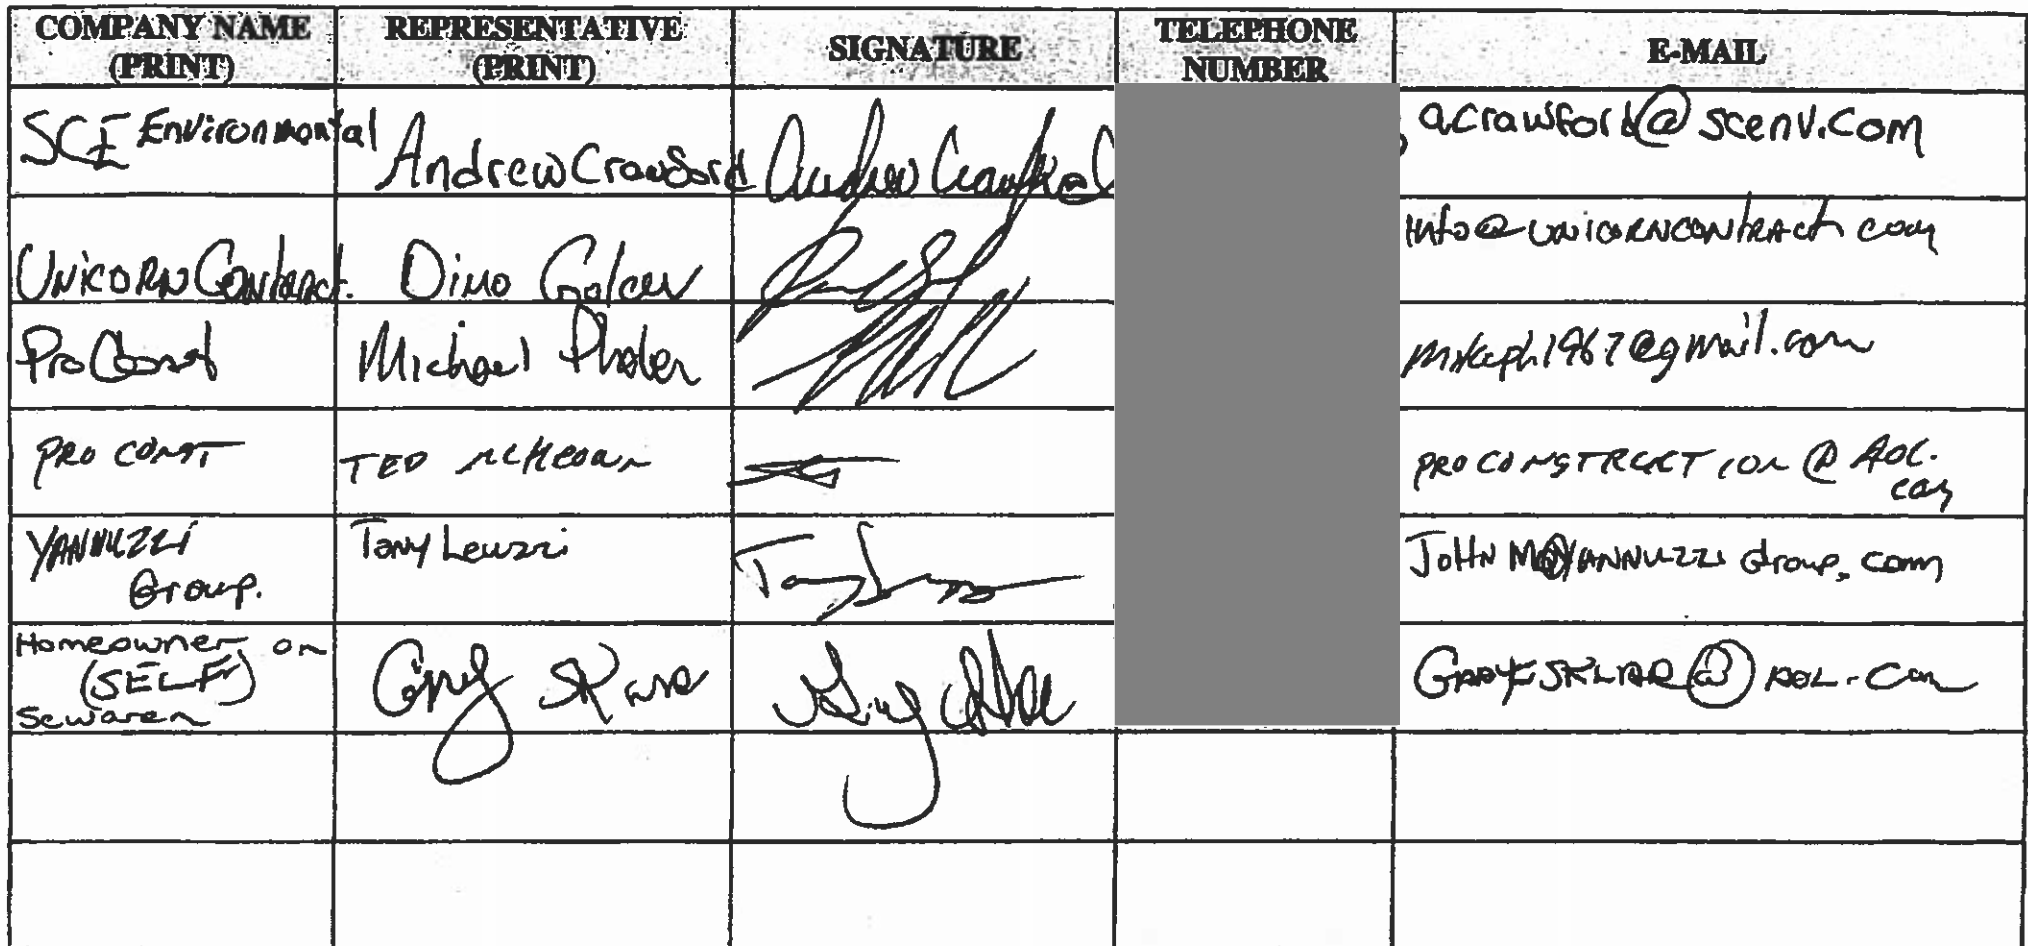 COMPANY NAME (PRINT) REPRESENTATIVE (PRINT) SIGNATURE TELEPHONE NUMBER E-MAIL
SCE Environmental Andrew Crawford Andrew Crawford acrawford@scenv.com
UNICORN Contract. Dino info@unicorncontract.com
Pro Const Michael Phalen @gmail.com
PRO CONST TED MCKEOWN PROCONSTRUCTION@AOL.
com
YANNUZZI Tony Leuzzi JOHNM@YANNUZZIGroup.com
Group.
Homeowner on
(SELF) GARYSKLIAR@AOL.Com
Sewaren